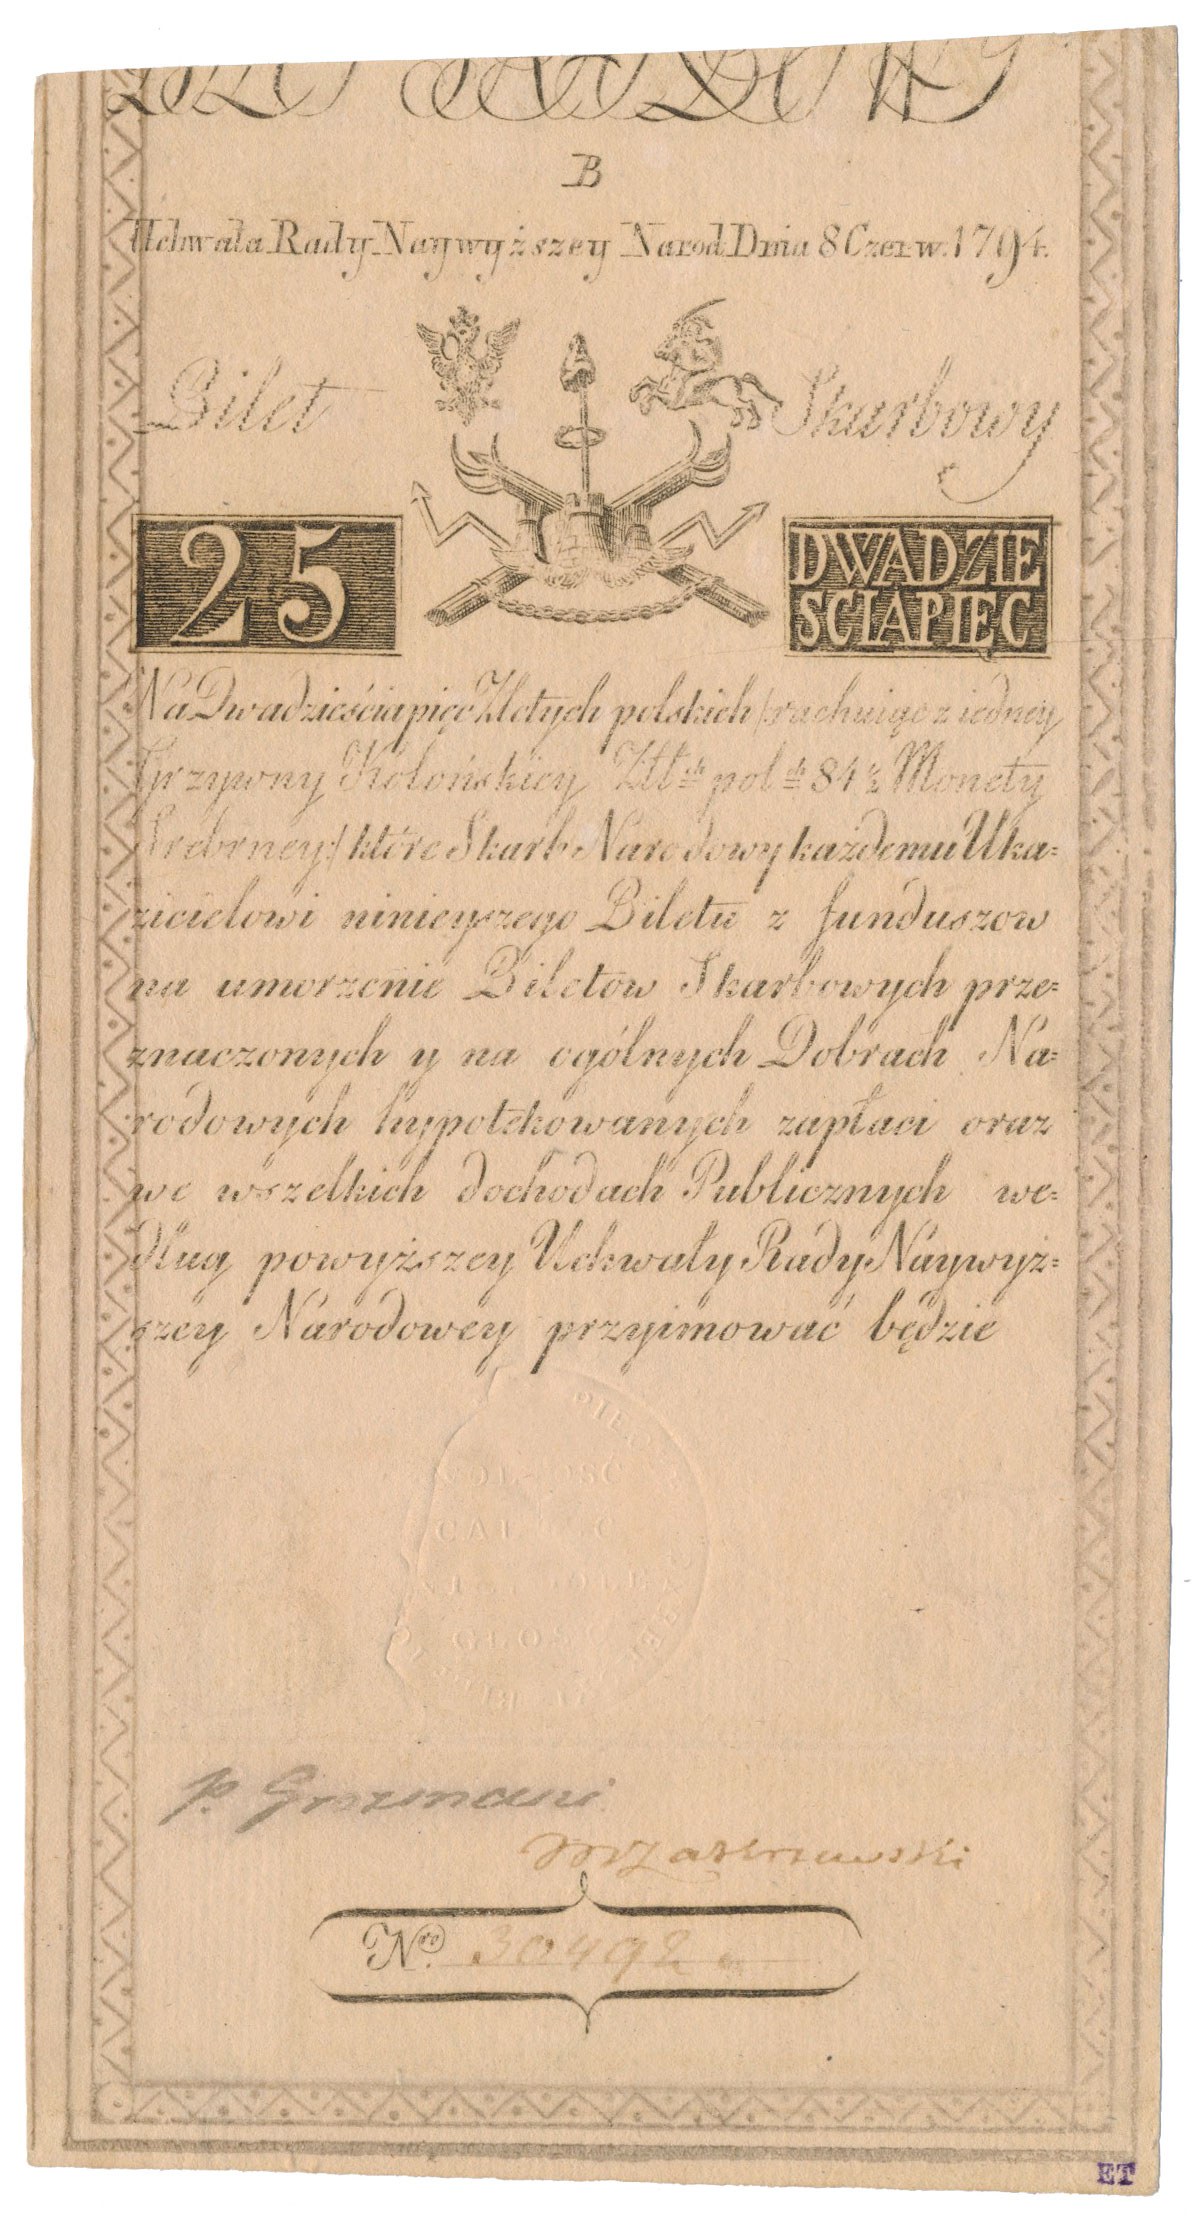 B
Uchwała Rady Naywyższey Narod. Dnia 8 Czerw. 1794.
Bilet Skarbowy
25
DWADZIE
SCIAPIĘC
Na Dwadzieścia pięc Złotych polskich /:rachuiąc z iedney
Grzywny Kolońskiey Złł: pol: 84 ½ Monety
Srebrney:/ które Skarb Narodowy każdemu Uka=
zicielowi ninieyszego Biletu z funduszow
na umorzenie Biletow Skarbowych prze=
znaczonych y na ogólnych Dobrach Na=
rodowych hypotekowanych zapłaci oraz
we wszelkich dochodach Publicznych we=
dług powyższey Uchwały Rady Naywyż=
szey Narodowey przyimować będzie
WOLNOSC
CAŁOSC
GŁOSC
p. Groszmani
MZakrzewski
Nro. 30492
ET